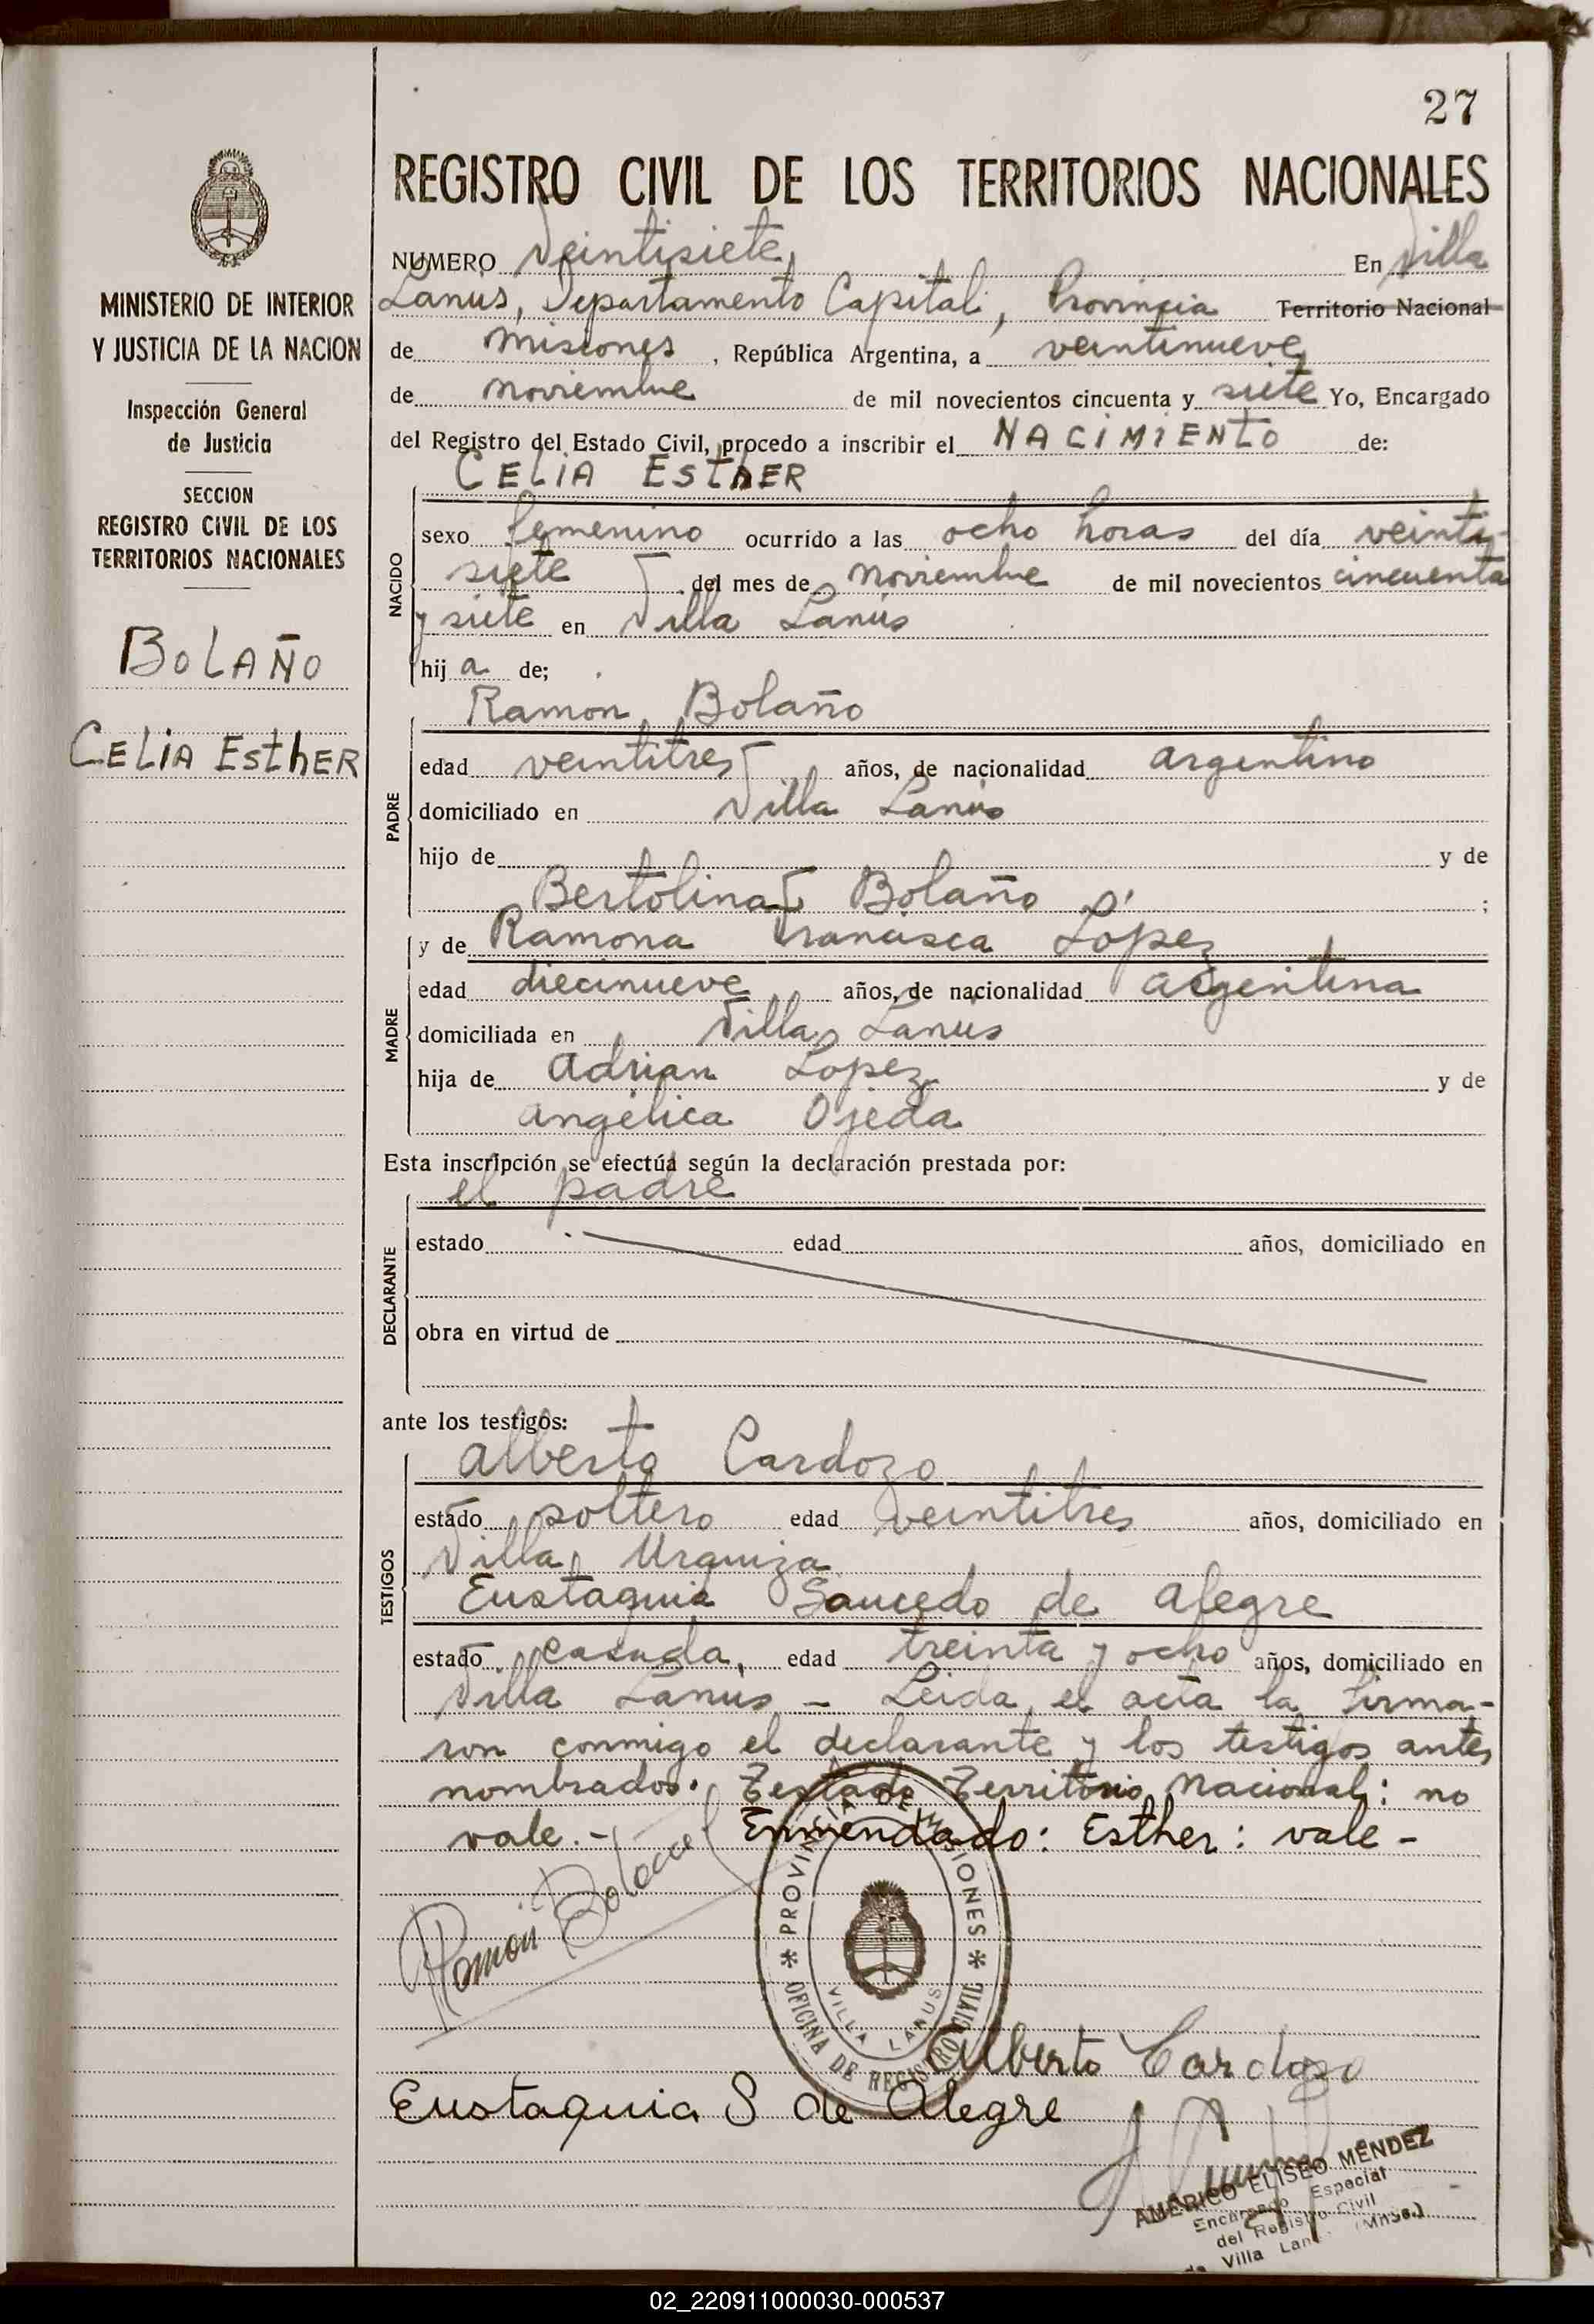 27
REGISTRO CIVIL DE LOS TERRITORIOS NACIONALES
MINISTERIO DE INTERIOR
Y JUSTICIA DE LA NACION
Inspección General
de Justicia
SECCION
REGISTRO CIVIL DE LOS
TERRITORIOS NACIONALES
BOLAÑO
CELIA EsthER
NUMERO Veintisiete En Villa
Lanús, Departamento Capital, Provincia Territorio Nacional
de Misiones, República Argentina, a veintinueve
de noviembre de mil novecientos cincuenta y siete Yo, Encargado
del Registro del Estado Civil, procedo a inscribir el NACIMIENTO de:
CELIA ESthER
NACIDO
sexo femenino ocurrido a las ocho horas del día veinti-
siete del mes de noviembre de mil novecientos cincuenta
y siete en Villa Lanús
hija de;
Ramon Bolaño
PADRE
edad veintitres años, de nacionalidad argentino
domiciliado en Villa Lanús
hijo de y de
Bertolina Bolaño ;
y de Ramona Francisca López
MADRE
edad diecinueve años, de nacionalidad argentina
domiciliada en Villa Lanús
hija de Adrian Lopez y de
Angélica Ojeda
Esta inscripción se efectúa según la declaración prestada por:
el padre
DECLARANTE
estado edad años, domiciliado en
obra en virtud de
ante los testigos:
Alberto Cardozo
TESTIGOS
estado soltero edad veintitres años, domiciliado en
Villa Urquiza
Eustaquia Saucedo de Alegre
estado casada, edad treinta y ocho años, domiciliado en
Villa Lanús - Leida el acta la firma-
ron conmigo el declarante y los testigos antes
nombrados. Testado Territorio Nacional: no
vale.- Enmendado: Esther: vale-
Ramón
PROVINCIA DE MISIONES
VILLA LANUS
OFICINA DE REGISTRO CIVIL
Alberto Cardozo
Eustaquia S de Alegre
AMÉRICO ELISEO MÉNDEZ
Encargado Especial
del Registro Civil
Villa
02_220911000030-000537